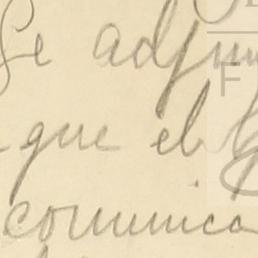 Se adjun
que el
comunica